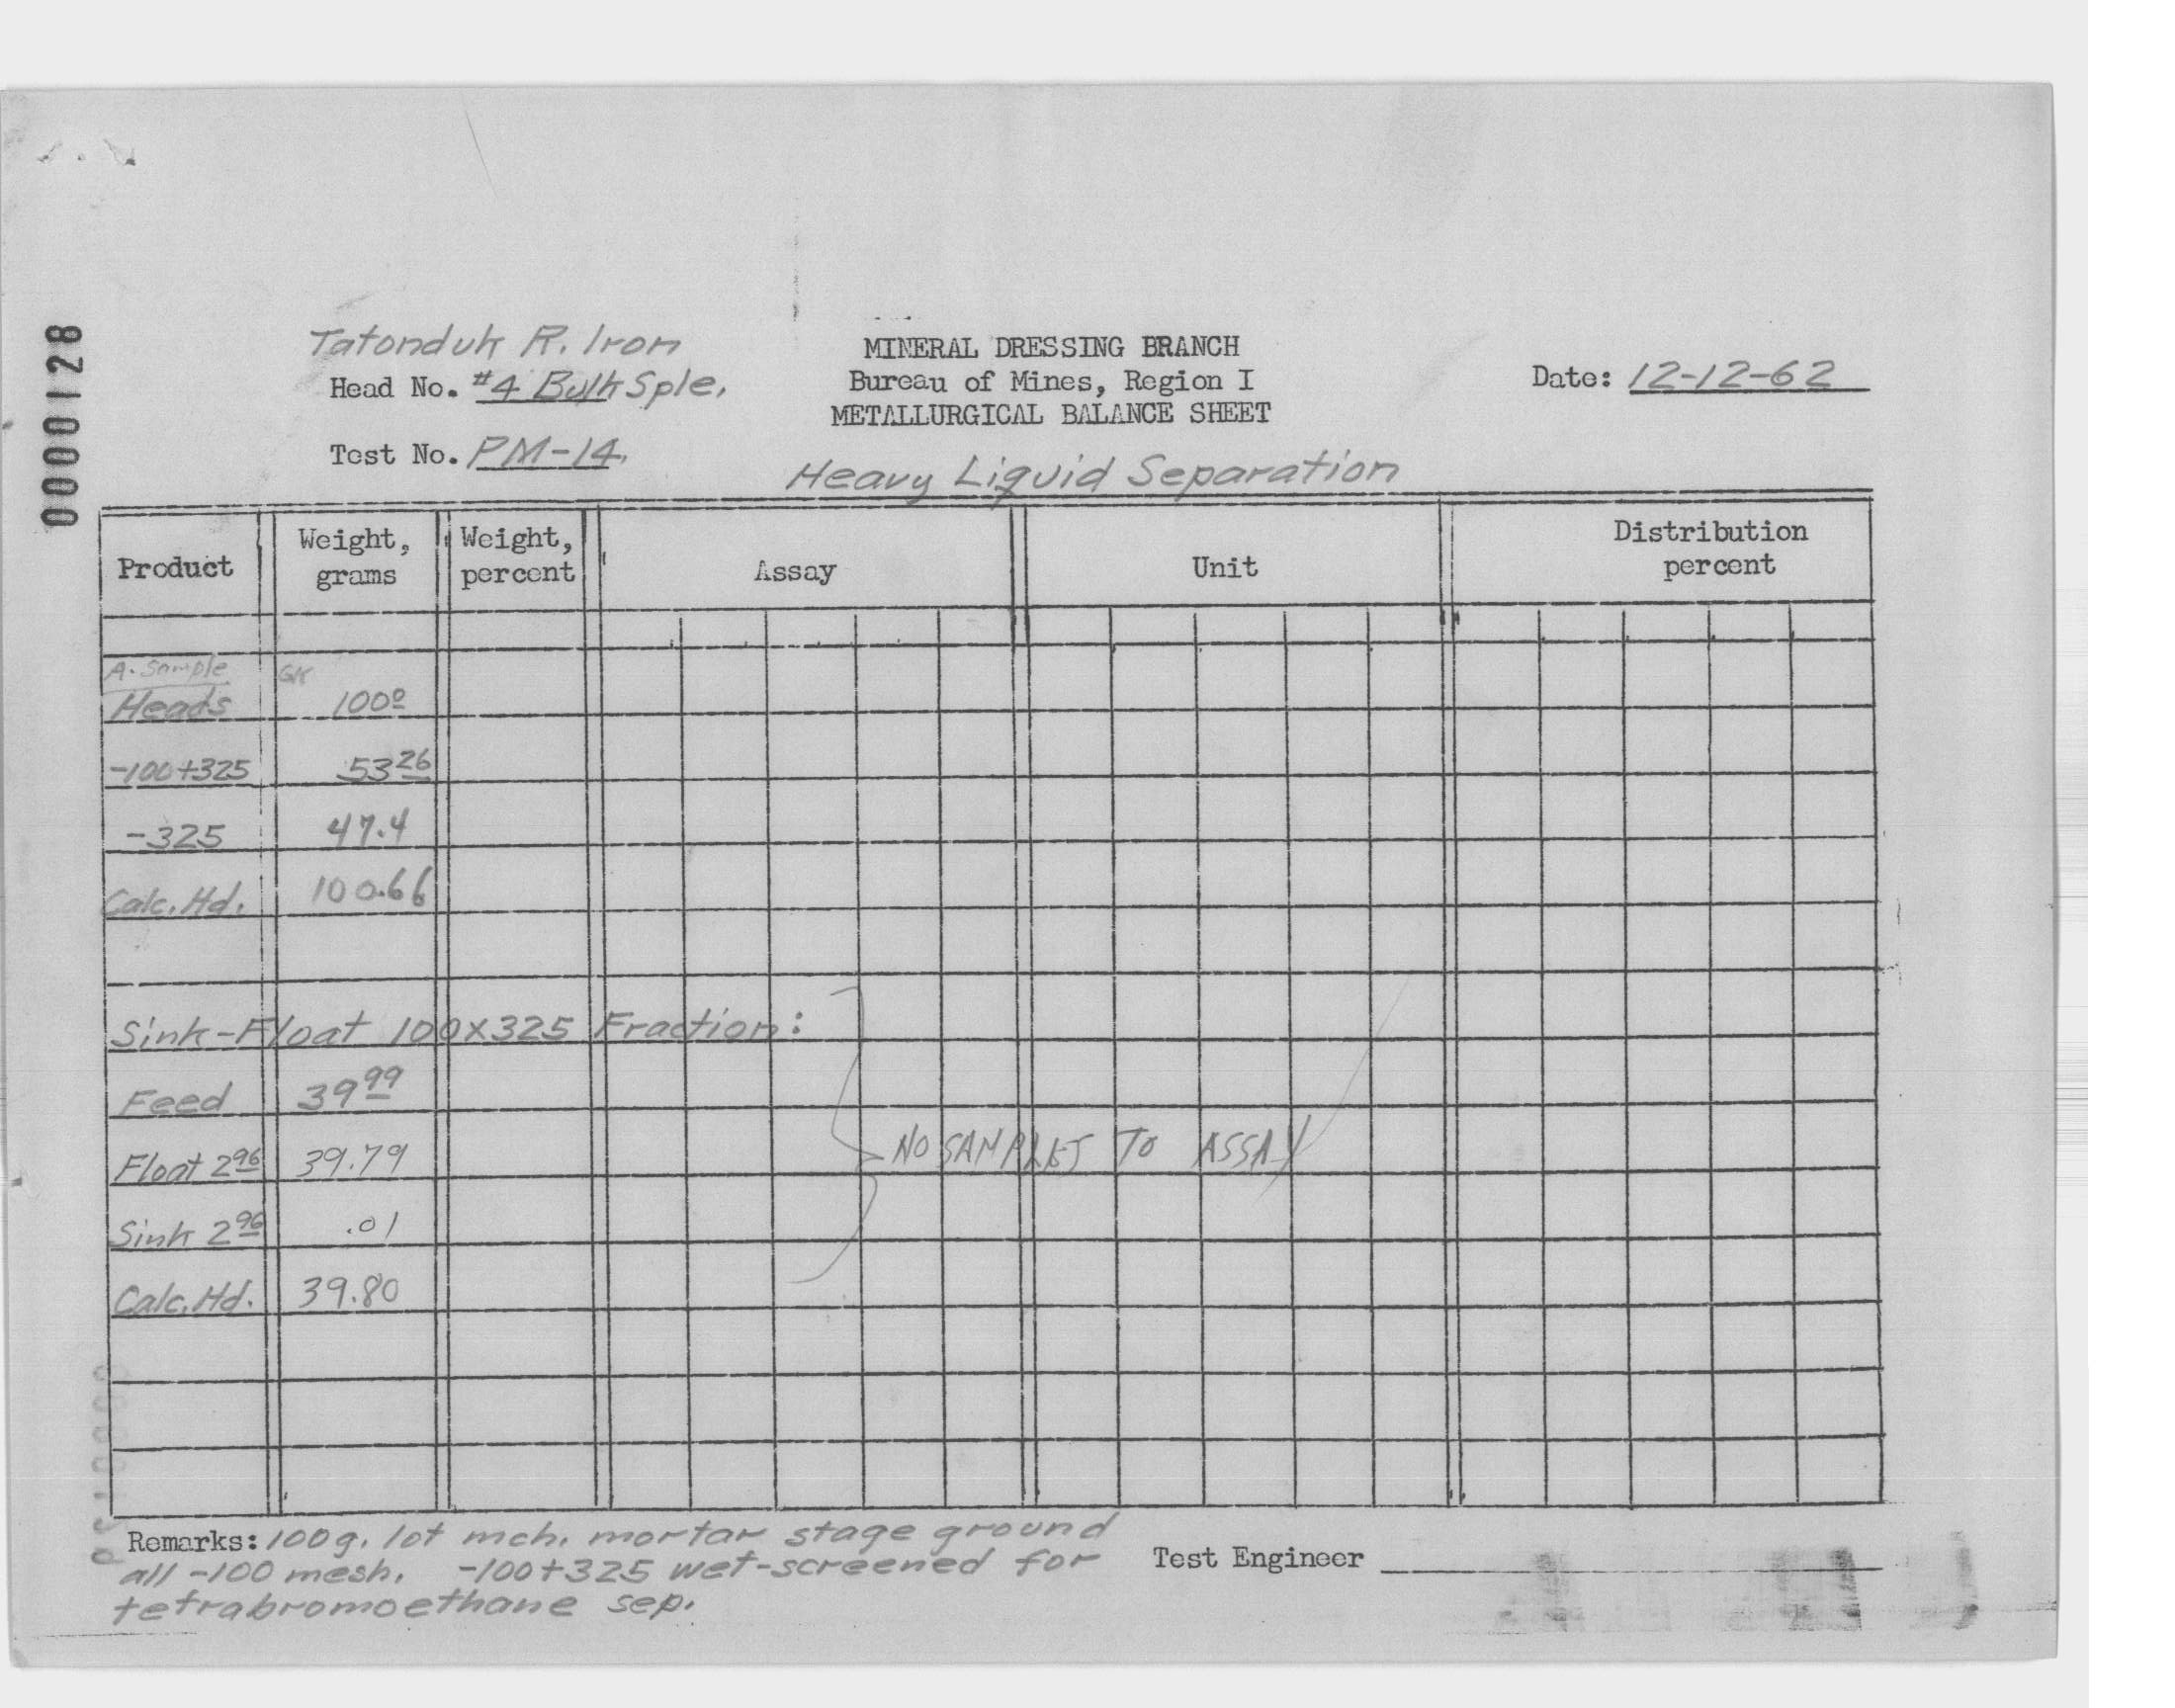 0000128
Tatonduk R. Iron
Head No. #4 Bulk Sple.
Test No. PM-14.
MINERAL DRESSING BRANCH
Bureau of Mines, Region I
METALLURGICAL BALANCE SHEET
Heavy Liquid Separation
Date: 12-12-62
Product Weight, grams Weight, percent Assay Unit Distribution percent
A. Sample GK
Heads 100º
-100+325 53 26
-325 47.4
Calc. Hd. 100.66
Sink-Float 100x325 Fraction:
Feed 39 99
Float 2 96 39.79
NO SAMPLES TO ASSAY
Sink 2 96 .01
Calc. Hd. 39.80
Remarks: 100g. lot mch. mortar stage ground
all -100 mesh. -100+325 wet-screened for
tetrabromoethane sep.
Test Engineer